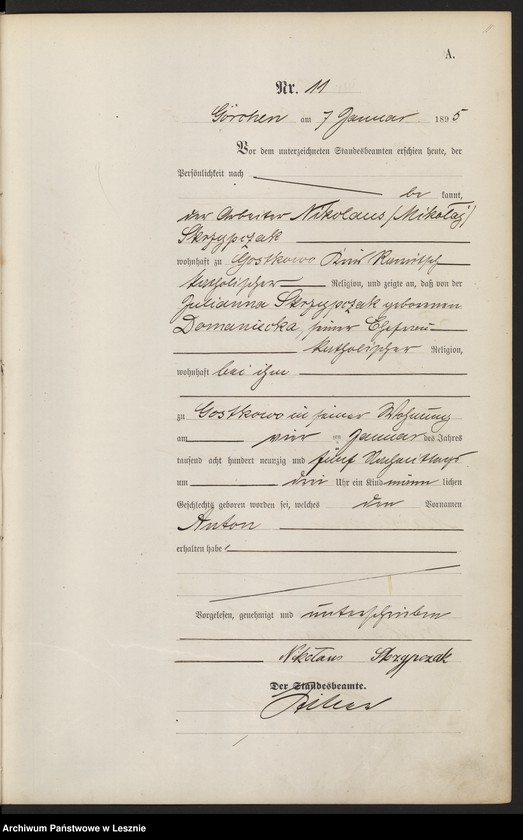 A.
Nr. 11
Görchen am 7 Januar 1895
Vor dem unterzeichneten Standesbeamten erschien heute, der
Persönlichkeit nach
be kannt,
der Arbeiter Nikolaus (Mikołaj)
Skrzypczak
wohnhaft zu Gostkowo Kreis Rawitsch
katholischer Religion, und zeigte an, daß von der
Julianna Skrzypczak geborenen
Domaniecka, seiner Ehefrau
katholischer Religion,
wohnhaft bei ihm
zu Gostkowo in seiner Wohnung
am vier ten Januar des Jahres
tausend acht hundert neunzig und fünf Nachmittags
um drei Uhr ein Kind männ lichen
Geschlechts geboren worden sei, welches den Vornamen
Anton
erhalten habe.
Vorgelesen, genehmigt und unterschrieben
Nikołaus Skrzypczak
Der Standesbeamte.
Archiwum Państwowe w Lesznie